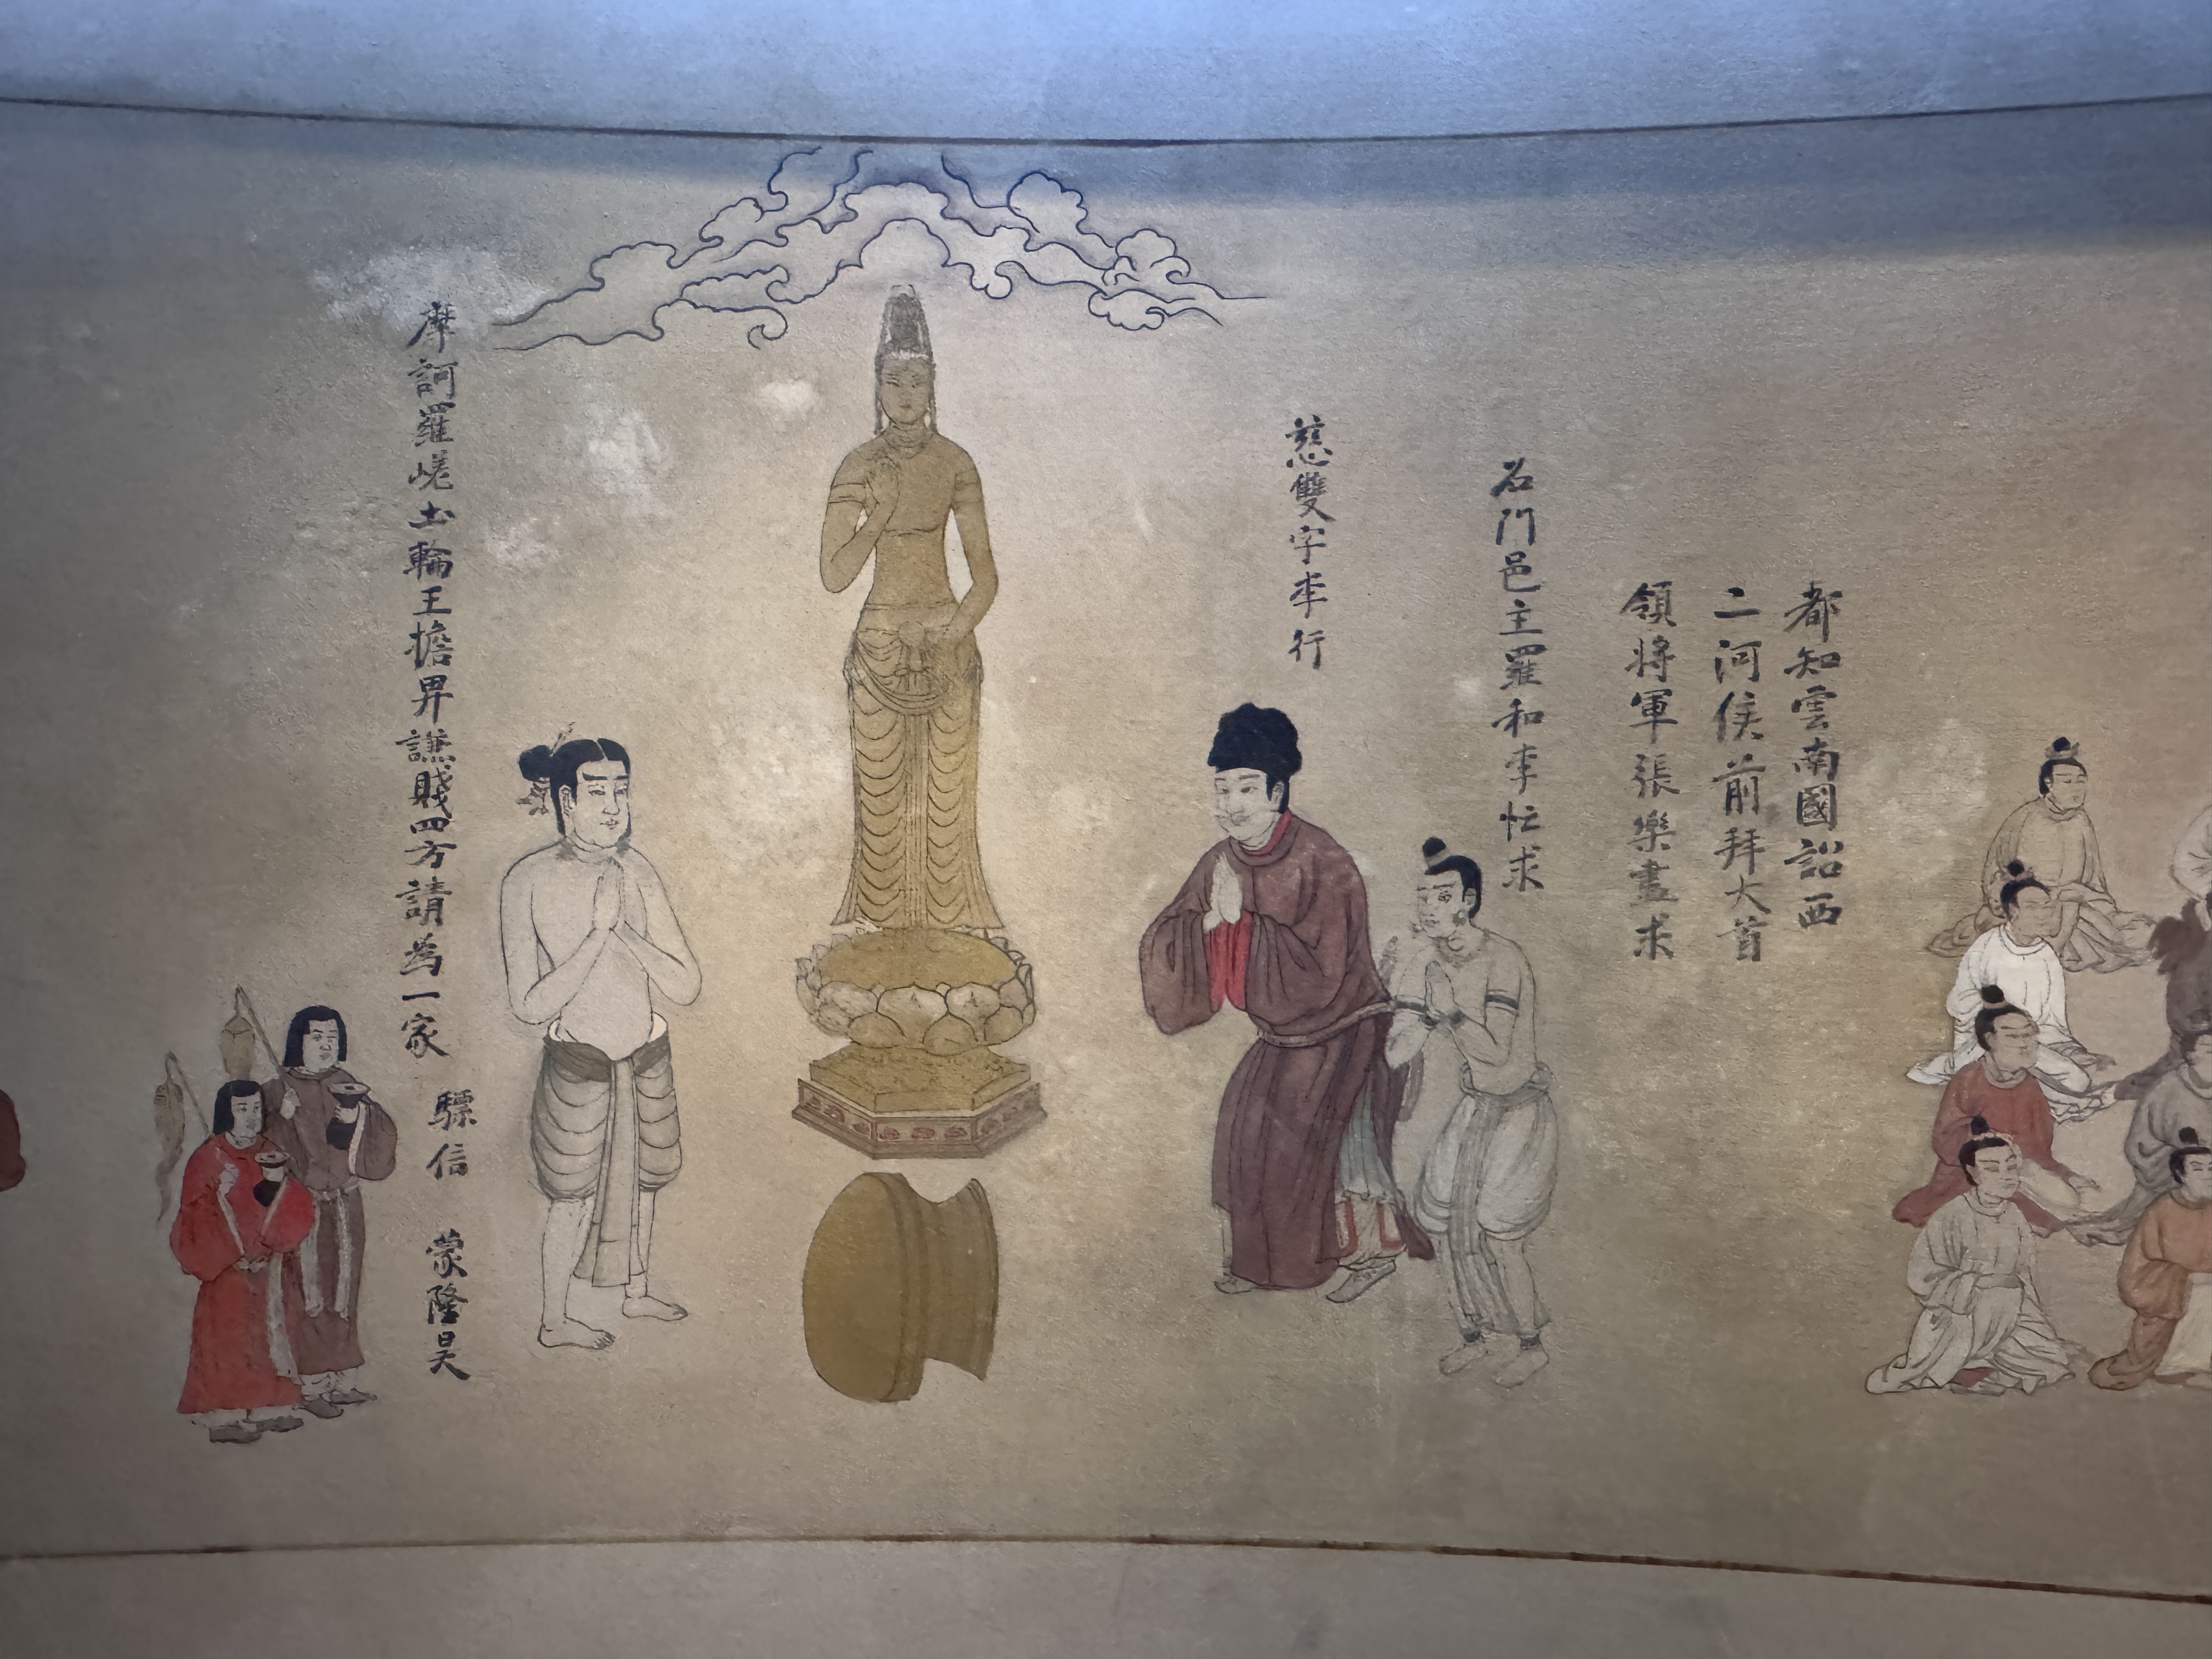 都知雲南國詔西
二河侯前拜大首
領將軍張樂盡求
石門邑主羅和李忙求
慈雙字李行
摩訶羅嵯土輪王擔畀謙賤四方請為一家
驃信 蒙隆昊